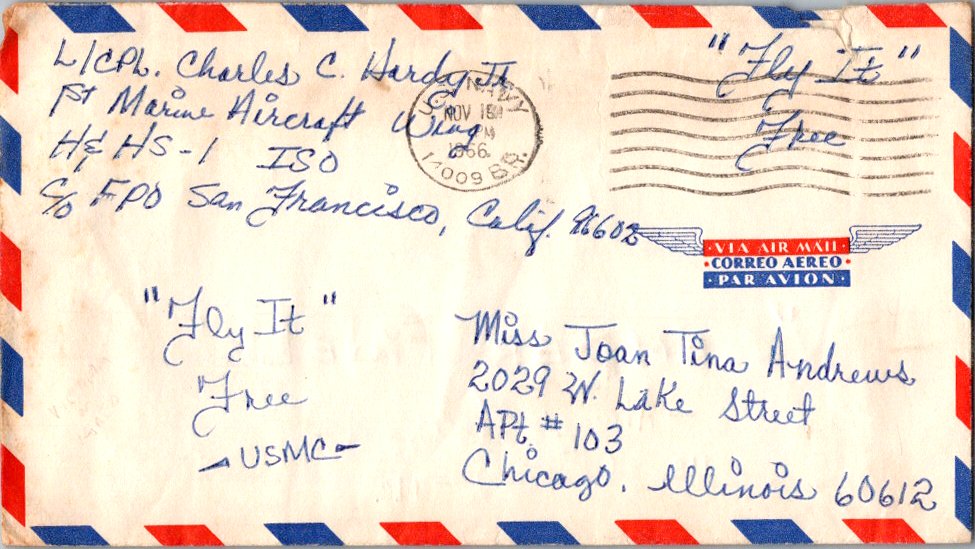 L/CPL. Charles C. Hardy Jr.
1st Marine Aircraft Wing
H&HS-1 ISO
C/O FPO San Francisco, Calif. 96602
"Fly It"
Free
U.S. NAVY
NOV 18
PM
1966
14009 BR.
VIA AIR MAIL
CORREO AEREO
PAR AVION
"Fly It"
Free
- USMC -
Miss Joan Tina Andrews
2029 W. Lake Street
APt. # 103
Chicago, Illinois 60612